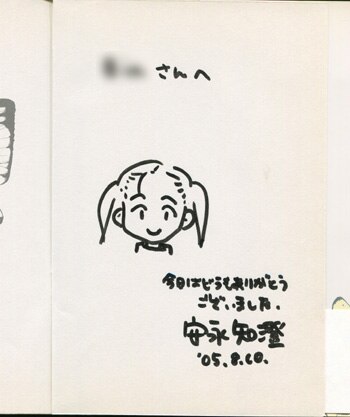 さんへ
今日はどうもありがとう
ございました.
安永知澄
'05.8.28.